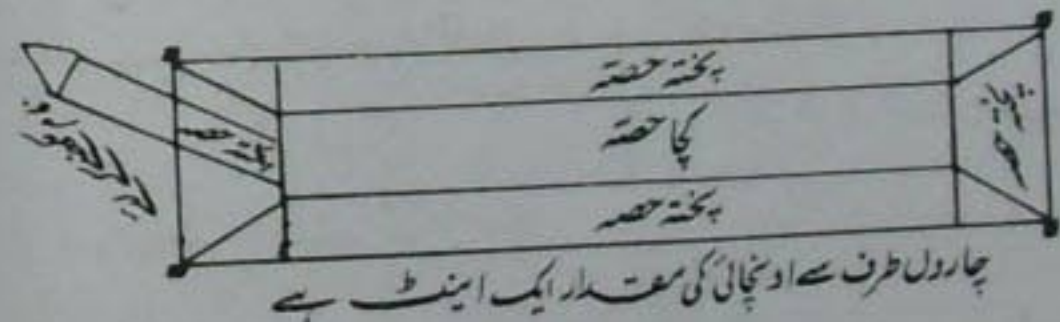 پختہ حصہ
پختہ حصہ
کچا حصہ
پختہ حصہ
پختہ حصہ
چاروں طرف سے اونچائی کی مقدار ایک اینٹ ہے